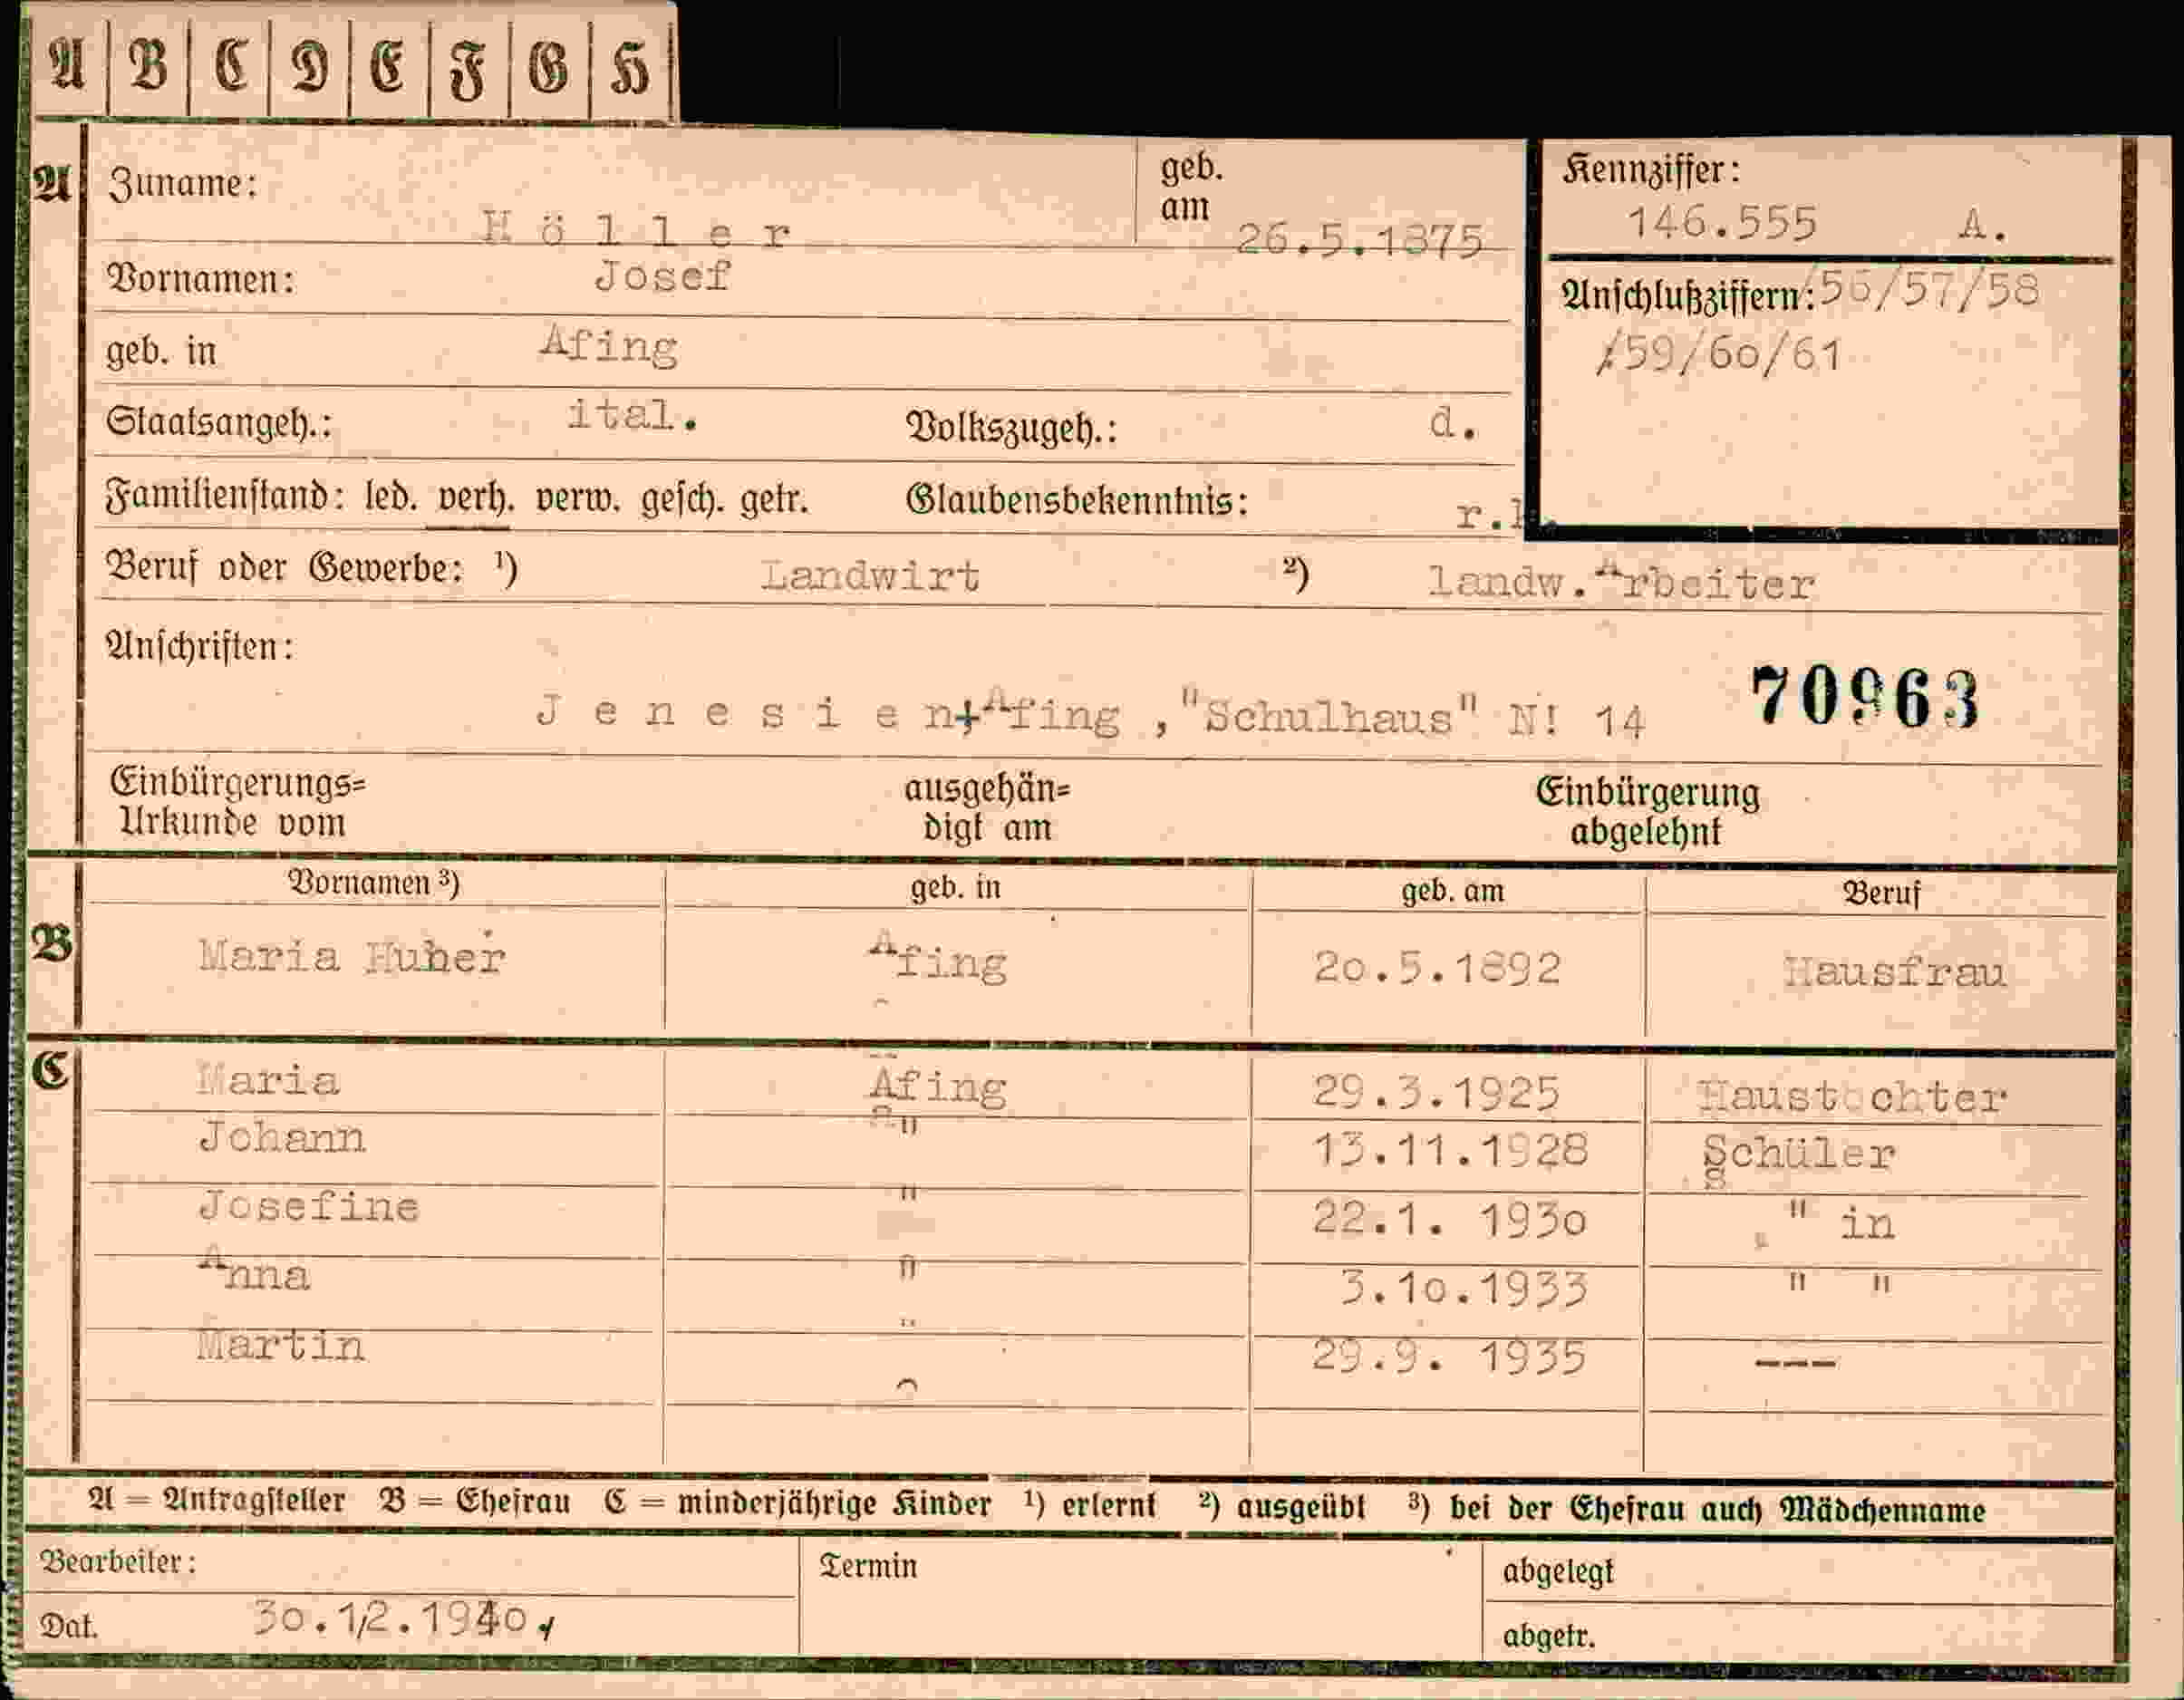 A B C D E F G H
A Zuname: Höller geb. am 26.5.1875 Kennziffer: 146.555 A.
Vornamen: Josef Anschlußziffern: /56/57/58
/59/60/61
geb. in Afing
Staatsangeh.: ital. Volkszugeh.: d.
Familienstand: led. verh. verw. gesch. getr. Glaubensbekenntnis: r.k.
Beruf oder Gewerbe: ¹) Landwirt ²) landw. Arbeiter
Anschriften:
Jenesien+Afing ,"Schulhaus" N! 14 70963
Einbürgerungs= ausgehän= Einbürgerung
Urkunde vom digt am abgelehnt
Vornamen ³) geb. in geb. am Beruf
B Maria Huber Afing 20.5.1892 Hausfrau
C Maria Afing 29.3.1925 Haustochter
Johann " 13.11.1928 Schüler
Josefine " 22.1. 1930 " in
Anna " 3.10.1933 " "
Martin " 29.9. 1935 ---
A = Antragsteller B = Ehefrau C = minderjährige Kinder ¹) erlernt ²) ausgeübt ³) bei der Ehefrau auch Mädchenname
Bearbeiter: Termin abgelegt
Dat. 30.12.1940 abgetr.